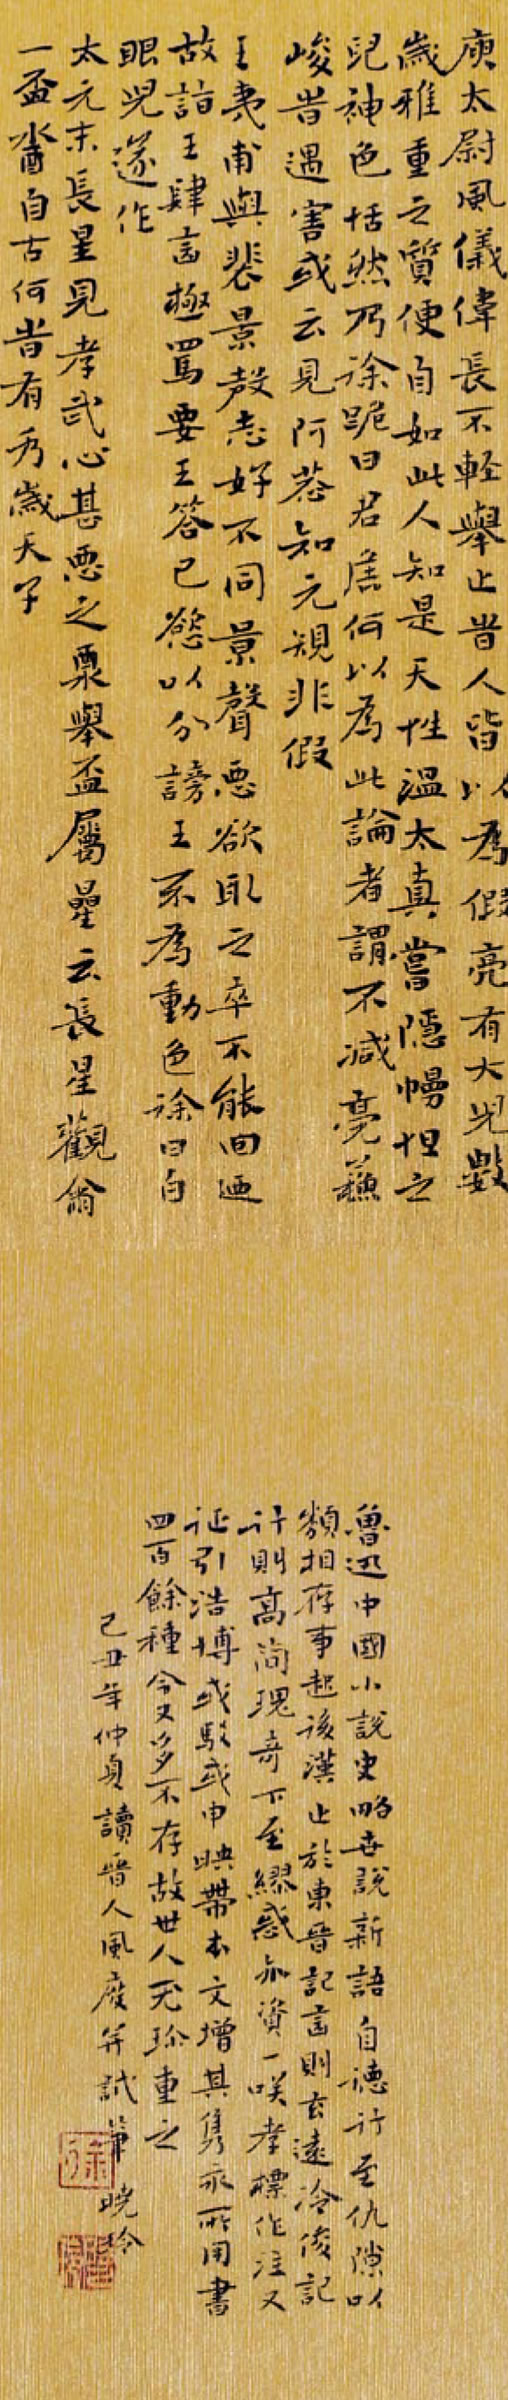 庾太尉風儀偉長不輕舉止旹人皆以為假亮有大兒數
歲雅重之質便自如此人知是天性溫太真嘗隱幔怛之
此兒神色恬然乃徐跪曰君侯何以為此論者謂不減亮蘇
峻旹遇害或云見阿恭知元規非假
王夷甫與裴景聲志好不同景聲惡欲取之卒不能回迺
故詣王肆言極罵要王答己慾以分謗王不為動色徐曰白
眼兒遂作
太元末長星見孝武心甚惡之舉盃屬星云長星勸爾
一盃酒自古何旹有萬歲天子
魯迅中國小說史略世說新語自德行至仇隙以
類相存事起後漢止於東晉記言則玄遠冷俊記
行則高簡瑰奇下至繆惑亦資一咲孝標作注又
征引浩博或駁或申映帶本文增其雋永所用書
四百餘種今又多不存故世人尤珍重之
己丑年仲夏讀晉人風度并試筆曉玲
徐